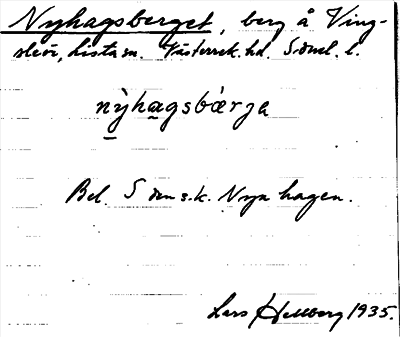 Nyhagsberget, berg å Ving-
sleör, Lista sn. Västerrek. hd. Södml. l.
nỳhagsbärja
Bel. S om s.k. Nya hagen.
Lars Hellberg 1935.